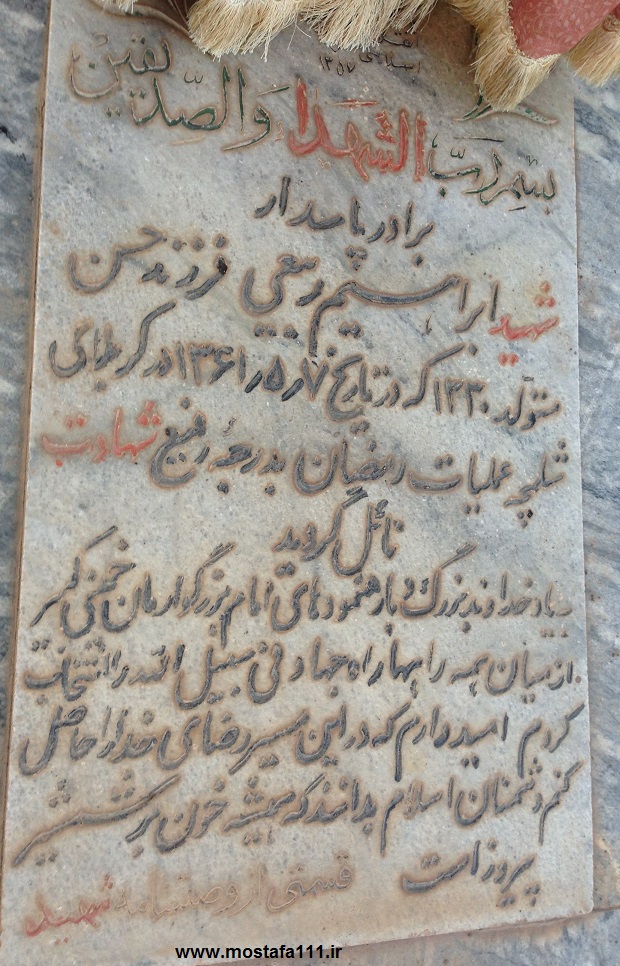 اسلامی ۱۳۵۷
بسم رب الشهدا والصدیقین
برادر پاسدار
شهید ابراهیم ربیعی فرزند حسن
متولد ۱۳۲۰ که در تاریخ ۷ر۵ر۱۳۶۱ در کربلای
شلمچه عملیات رمضان بدرجه رفیع شهادت
نائل گردید
بیاد خداوند بزرگ و با رهنمودهای امام بزرگوارمان خمینی کبیر
از میان همه راهها راه جهاد فی سبیل الله را انتخاب
کردم امیدوارم که در این مسیر رضای خدا را حاصل
کنم دشمنان اسلام بدانند که همیشه خون بر شمشیر
پیروز است
قسمتی از وصیتنامه شهید
www.mostafa111.ir